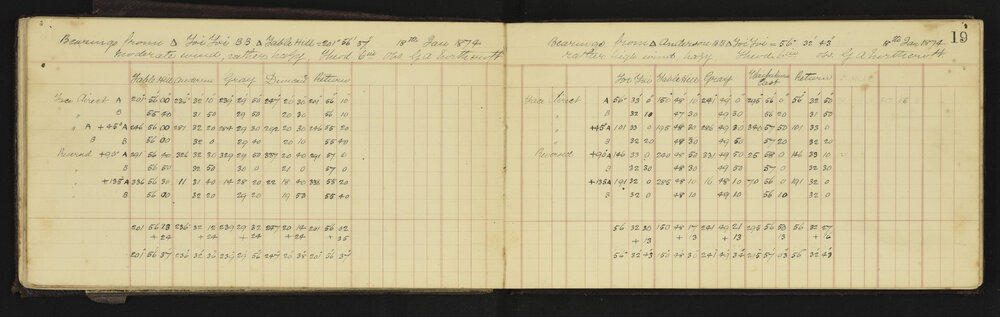 Bearings from △ Toi Toi BB △ Table Hill = 201° 56' 37" 18th Jan 1874
Moderate wind, rather hazy, Theod 6 in Obs G A Northcroft
Table Hill Gray Duncan Return
Face Direct A 201° 56' 00" 236° 32' 10" 239° 29' 50" 247° 20' 30" 201° 56' 10"
B 55 40 31 50 29 50 20 30 56 10
" A +45° A 246 56 00 281 32 20 284 29 30 292 20 30 246 55 20
" B B 56 00 32 0 29 40 20 10 55 40
Reversed +90° A 291 56 40 326 32 30 329 29 50 337 20 40 291 57 0
B 56 50 32 50 30 0 21 0 57 0
" +135 A 336 56 30 11 31 40 14 28 20 22 18 40 336 55 20
" B 56 00 32 20 29 20 19 50 55 40
201 56 13 236 32 12 239 29 32 247 20 14 201 56 02
+ 24 + 24 + 24 + 24 + 35
201 56 37 236 32 36 239 29 56 247 20 38 201 56 37
19
Bearings from △ Anderson BB △ Toi Toi = 56° 32' 43" 18th Jan 1874
Rather high wind hazy Theod 6 in Obs G A Northcroft
Toi Toi Table Hill Gray East Return
Face Direct A 56° 33' 0" 150° 48' 10" 241° 49' 0" 295 56 0 56° 32' 50"
B 32 10 47 30 49 30 56 20 31 50
" +45° A 101 33 0 195 48 30 286 49 30 340 57 50 101 33 0
" B 32 20 48 30 49 50 57 20 32 20
Reversed +90° A 146 33 0 240 48 50 331 49 50 25 58 0 146 33 10
B 32 30 48 30 49 50 57 0 32 30
" +135 A 191 32 0 285 48 10 16 48 10 70 56 0 191 32 0
" B 32 0 48 10 49 10 56 10 32 0
56 32 30 150 48 17 241 49 21 295 56 50 56 32 27
+ 13 + 13 + 13 + 13 + 16
56 32 43 150 48 30 241 49 34 215 57 03 56 32 43